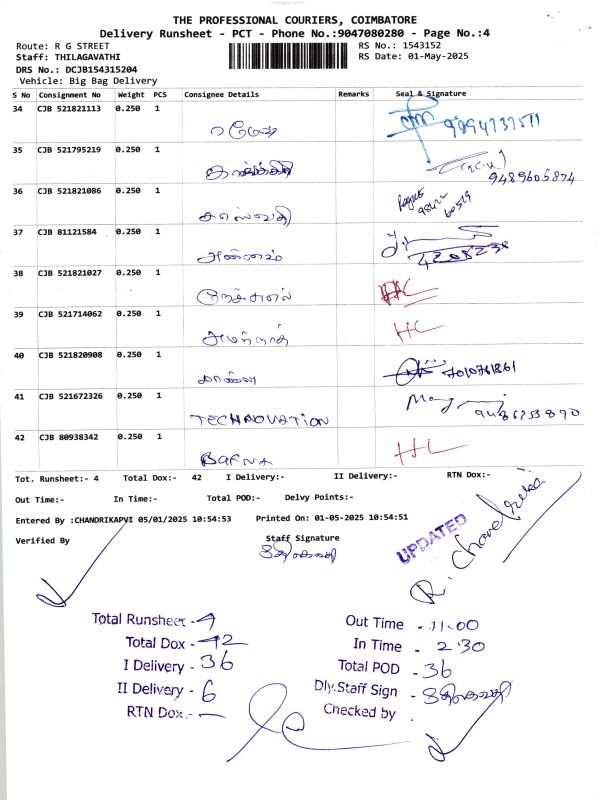 THE PROFESSIONAL COURIERS, COIMBATORE
Delivery Runsheet - PCT - Phone No.:9047080280 - Page No.:4
Route: R G STREET
RS No.: 1543152
Staff: THILAGAVATHI
RS Date: 01-May-2025
DRS No.: DCJB154315204
Vehicle: Big Bag Delivery
S No Consignment No Weight PCS Consignee Details Remarks Seal & Signature
34 CJB 521821113 0.250 1
ரமேஷ்
35 CJB 521795219 0.250 1
9489605874
36 CJB 521821086 0.250 1
சரஸ்வதி
37 CJB 81121584 0.250 1
38 CJB 521821027 0.250 1
HC
39 CJB 521714062 0.250 1
அமர்நாத் HC
40 CJB 521820908 0.250 1
7010761861
41 CJB 521672326 0.250 1
TECHNOVATION
42 CJB 80938342 0.250 1
BAFNA HC
Tot. Runsheet:- 4 Total Dox:- 42 I Delivery:- II Delivery:- RTN Dox:-
Out Time:- In Time:- Total POD:- Delvy Points:-
Entered By :CHANDRIKAPVI 05/01/2025 10:54:53 Printed On: 01-05-2025 10:54:51
Verified By Staff Signature
திலகவதி
UPDATED
R. Chandrika
Total Runsheet - 4
Total Dox - 42
I Delivery - 36
II Delivery - 6
RTN Dox - —
Out Time - 11.00
In Time - 2.30
Total POD - 36
Dly.Staff Sign - திலகவதி
Checked by